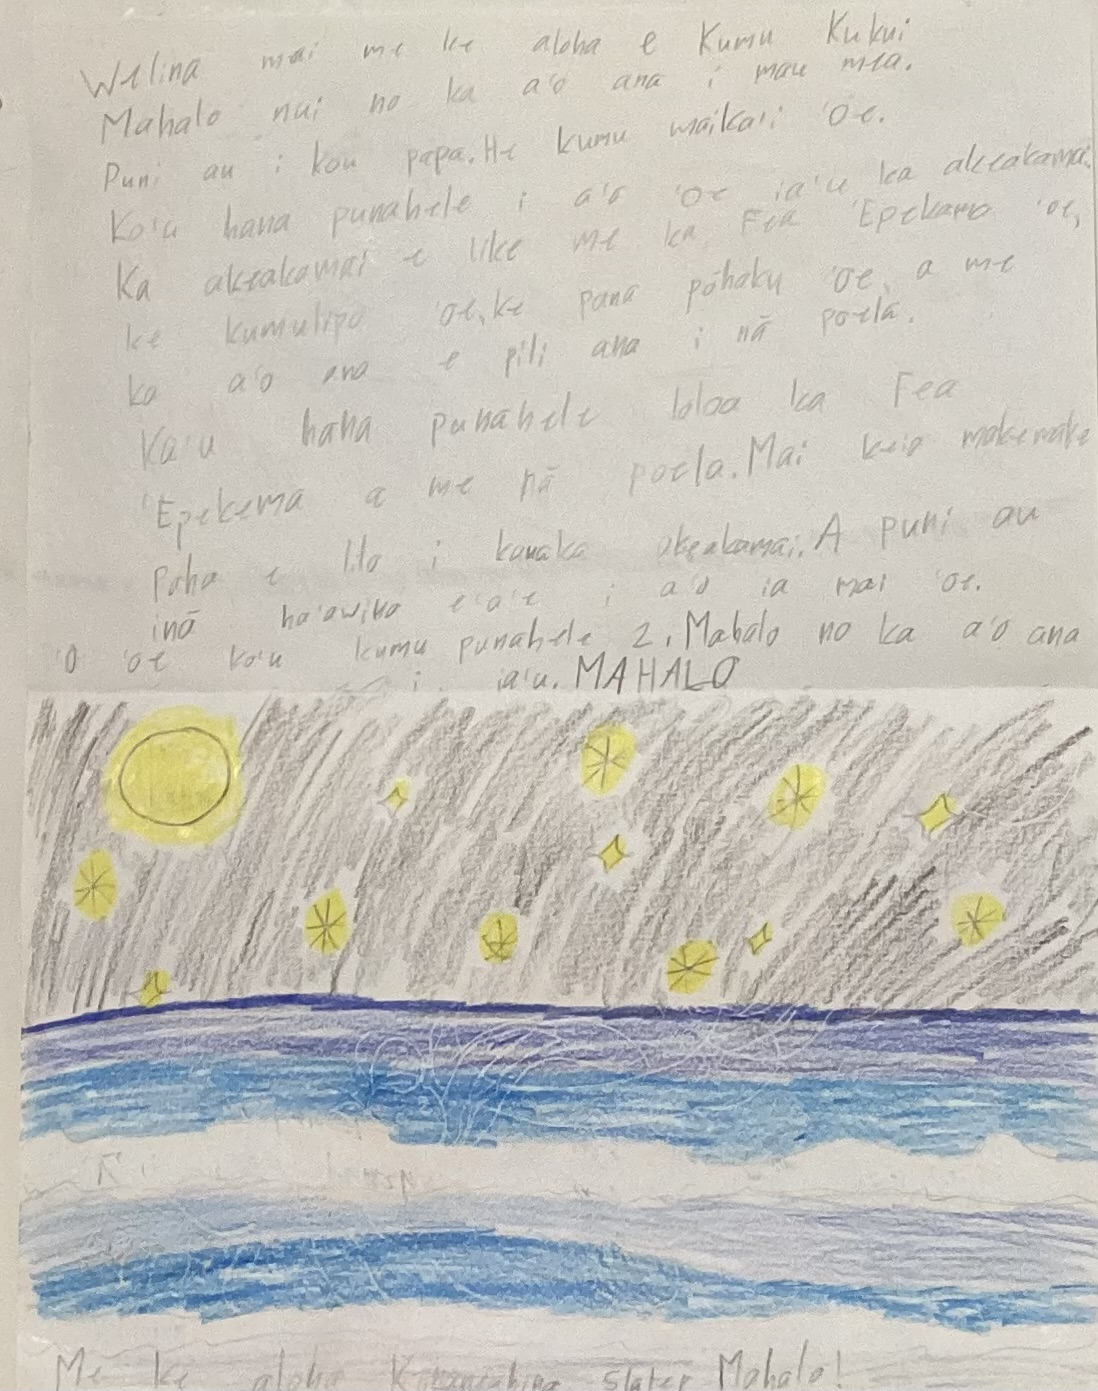 Welina mai me ke aloha e Kumu Kukui
Mahalo nui no ka a'o ana i mau mea.
Puni au i kou papa. He kumu maika'i 'oe.
Ko'u hana punahele i a'o 'oe ia'u ka akeakamai.
Ka akeakamai e like me ka Fea 'Epekema 'oe,
ke kumulipo 'oe, ke pana pōhaku 'oe, a me
ka a'o ana e pili ana i nā poela.
Ka'u hana punahele loloa ka Fea
'Epekema a me nā poela. Mai keia makemake
paha e lilo i kanaka akeakamai. A puni au
inā ha'awina e'a'e i a'o ia mai 'oe.
'O 'oe ko'u kumu punahele 2. Mahalo no ka a'o ana
i ia'u. MAHALO
Me ke aloha Slater Mahalo!